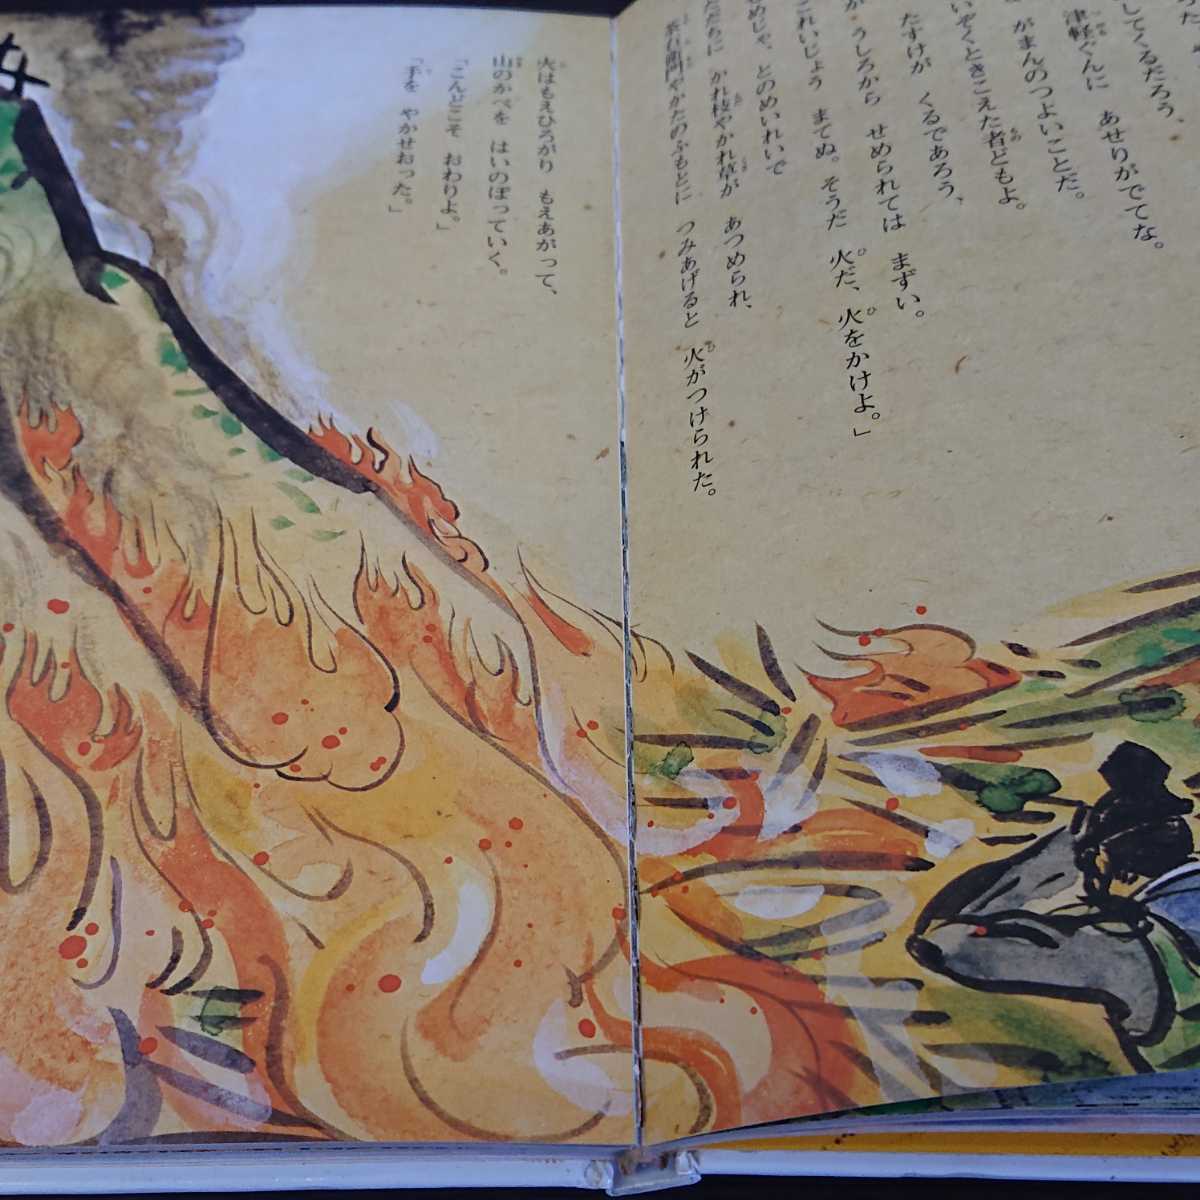 してくるだろう、
津軽ぐんに　あせりがでてな。
がまんのつよいことだ。
いぞくときこえた者どもよ。
たすけが　くるであろう、
うしろから　せめられては　まずい。
これいじょう　まてぬ。そうだ　火だ、火をかけよ。」
めじゃ、とのめいれいで
ただちに　かれ枝やかれ草が　あつめられ、
茶右衛門やかたのふもとに　つみあげると　火がつけられた。
火はもえひろがり　もえあがって、
山のかべを　はいのぼっていく。
「こんどこそ　おわりよ。」
「手を　やかせおった。」